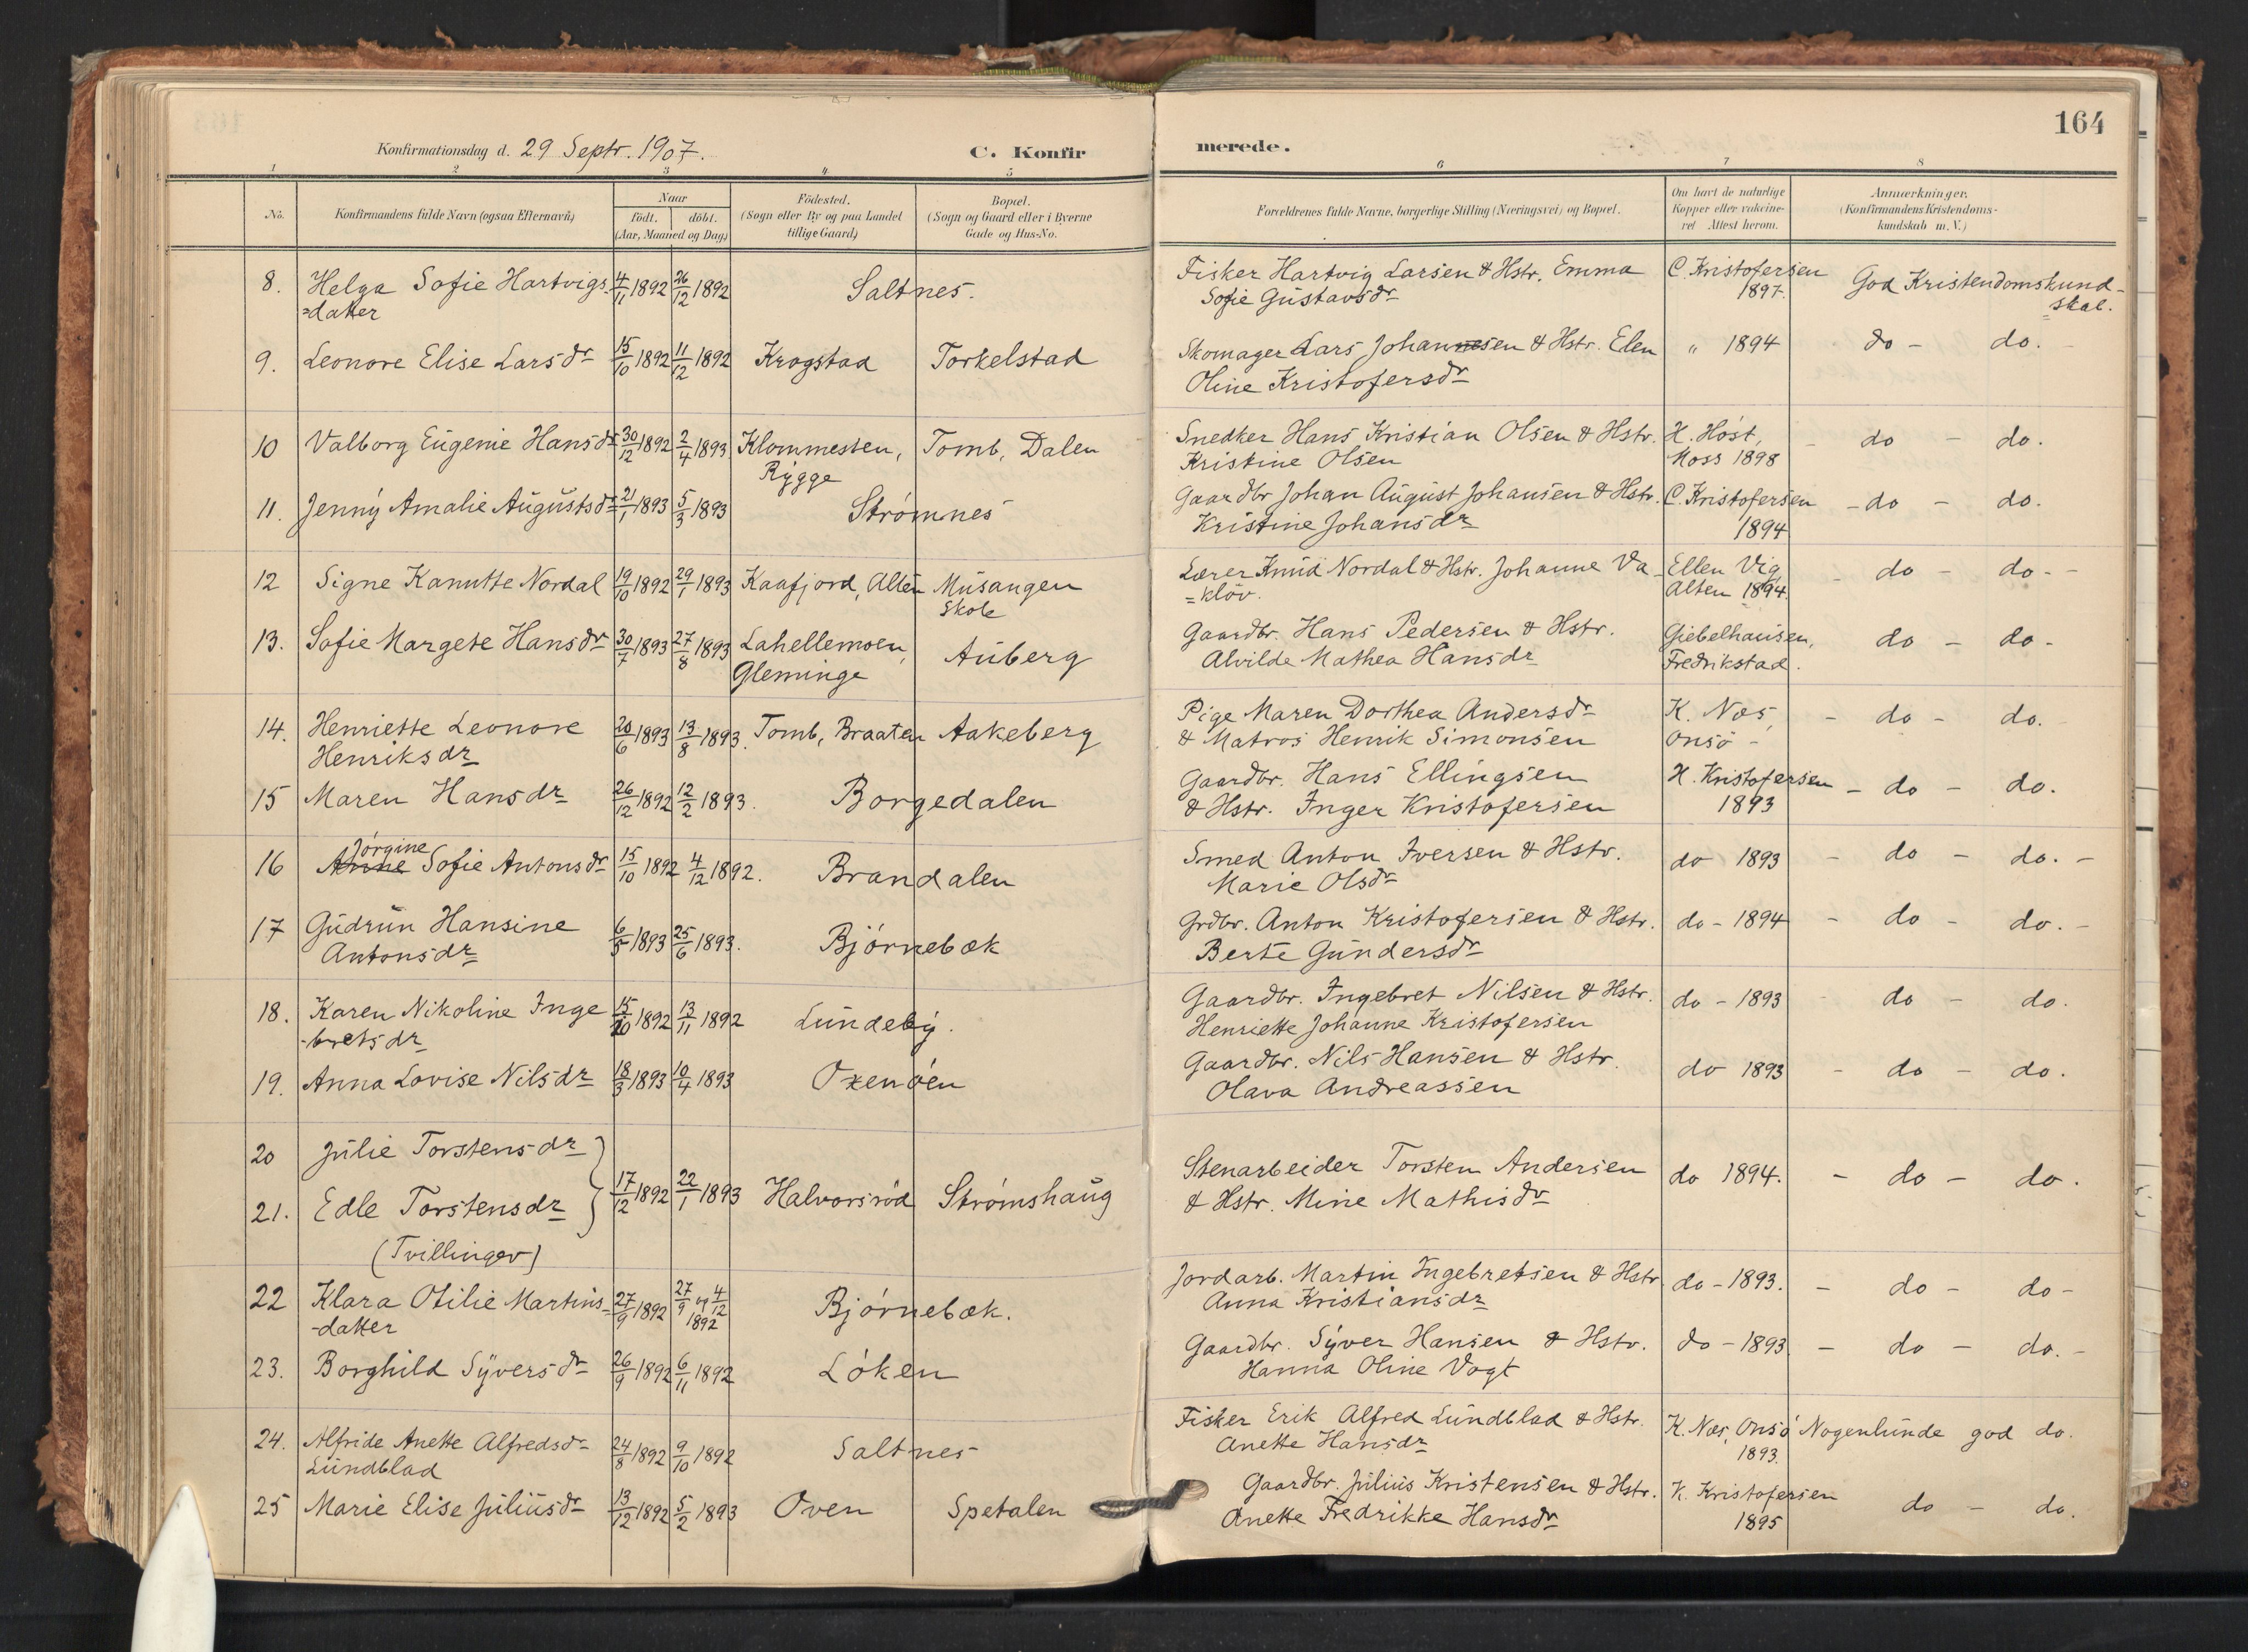 164
Konfirmationsdag d. 29 Septr. 1907.
C. Konfir
merede.
1 2 3 4 5 6 7 8
No.
Konfirmandens fulde Navn (ogsaa Efternavn)
Naar
födt. döbt.
(Aar, Maaned og Dag)
Födested.
(Sogn eller By og paa Landet
tillige Gaard)
Bopæl.
(Sogn og Gaard eller i Byerne
Gade og Hus-No.
Forældrenes fulde Navne, borgerlige Stilling (Næringsvei) og Bopæl.
Om havt de naturlige
Kopper eller vakcine-
ret Attest herom.
Anmærkninger.
(Konfirmandens Kristendoms-
kundskab m. V.)
8. Helga Sofie Hartvigs- 4/11 1892 26/12 1892 Saltnes. Fisker Hartvig Larsen & Hstr. Emma C. Kristofersen God Kristendomskund-
=datter Sofie Gustavsdr 1897. =skab.
9. Leonore Elise Larsdr 15/10 1892 11/12 1892 Krogstad Torkelstad Skomager Lars Johannesen & Hstr. Elen " 1894 do - do.
Oline Kristofersdr
10 Valborg Eugenie Hansdr 30/12 1892 2/4 1893 Klommesten, Tomb, Dalen Snedker Hans Kristian Olsen & Hstr. H. Høst, - do - do.
Rygge Kristine Olsen Moss 1898
11. Jenny Amalie Augustsdr 21/1 1893 5/3 1893 Strømnes Gaardbr Johan August Johansen & Hstr. C. Kristofersen - do - do.
Kristine Johansdr 1894
12 Signe Kanutte Nordal 19/10 1892 29/1 1893 Kaafjord, Alten Musangen Lærer Knud Nordal & Hstr. Johanne Va- Ellen Vig, - do - do -
Skole =kløv. Alten 1894.
13. Sofie Margete Hansdr 30/7 1893 27/8 1893 Lahellemoen, Auberg Gaardbr. Hans Pedersen & Hstr. Giebelhausen, do - do -
Glemminge Alvilde Mathea Hansdr Fredrikstad.
14. Henriette Leonore 20/6 1893 13/8 1893. Tomb, Braaten Aakeberg Pige Maren Dorthea Andersdr K. Næs, - do - do.
Henriksdr & Matros Henrik Simonsen Onsø -
15 Maren Hansdr 26/12 1892 12/2 1893. Borgedalen Gaardbr. Hans Ellingsen H. Kristofersen - do - do.
& Hstr. Inger Kristofersen 1893
Jörgine
16 Anne Sofie Antonsdr 15/10 1892 4/12 1892. Brandalen Smed Anton Iversen & Hstr. do 1893 - do - do. -
Marie Olsdr
17 Gudrun Hansine 6/5 1893 25/6 1893. Bjørnebæk Grdbr. Anton Kristofersen & Hstr. do - 1894 - do - do. -
Antonsdr Berte Gundersdr
18. Karen Nikoline Inge 15/10 1892 13/11 1892 Lundeby. Gaardbr. Ingebret Nilsen & Hstr. do - 1893 - do - do.
-bretsdr Henriette Johanne Kristofersen
19. Anna Lovise Nilsdr 18/3 1893 10/4 1893 Oxenøen Gaardbr. Nils Hansen & Hstr. do 1893 - do - do.
Olava Andreassen
20 Julie Torstensdr
17/12 1892 22/1 1893 Halvorsrød Strømshaug Stenarbeider Torsten Andersen do 1894. - do - do.
21. Edle Torstensdr & Hstr. Mine Mathisdr
(Tvillinger)
22 Klara Otilie Martins- 27/9 1892 27/9 og 4/12 1892 Bjørnebæk. Jordarb. Martin Ingebretsen & Hstr. do - 1893. - do - do -
-datter Anna Kristiansdr
23. Borghild Syversdr 26/9 1892 6/11 1892 Løken Gaardbr. Syver Hansen & Hstr. do - 1893. - do - do. -
Hanna Oline Vogt
24. Alfride Anette Alfredsdr 24/8 1892 9/10 1892 Saltnes Fisker Erik Alfred Lundblad & Hstr. K. Næs, Onsø Nogenlunde god do.
Lundblad Anette Hansdr 1893.
25 Marie Elise Juliusdr 13/12 1892 5/2 1893 Oven Spetalen Gaardbr. Julius Kristensen & Hstr. K. Kristofersen do - do.
Anette Fredrikke Hansdr 1895